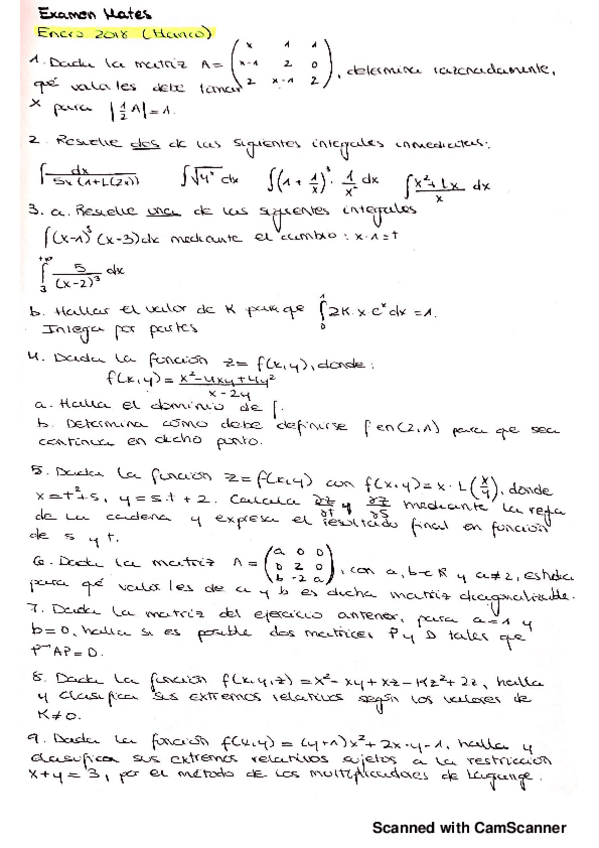 Examen Mates
Enero 2018 (Blanco)
1. Dada la matriz A = (x 1 1; x-1 2 0; 2 x-1 2), determina razonadamente,
qué valor/es debe tomar
x para |1/2 A| = 1.
2. Resuelve dos de las siguientes integrales inmediatas:
∫ dx/(5x(1+L(2x))) ∫ √4^x dx ∫ (1 + 1/x)^3 · 1/x² dx ∫ (x²+Lx)/x dx
3. a. Resuelve una de las siguientes integrales
∫(x-1)^3 (x-3) dx mediante el cambio: x-1=t
∫_3^{+∞} 5/(x-2)^3 dx
b. Hallar el valor de K para que ∫_0^1 2K·x e^x dx = 1.
Integra por partes
4. Dada la función z = f(x,y), donde:
f(x,y) = (x²-4xy+4y²)/(x-2y)
a. Halla el dominio de f.
b. Determina cómo debe definirse f en (2,1) para que sea
continua en dicho punto.
5. Dada la función z = f(x,y) con f(x,y) = x·L(x/y), donde
x = t²+s, y = s·t + 2. Calcula ∂z/∂t y ∂z/∂s mediante la regla
de la cadena y expresa el resultado final en función
de s y t.
6. Dada la matriz A = (a 0 0; 0 2 0; b -2 a), con a, b ∈ R y a≠2, estudia
para qué valor/es de a y b es dicha matriz diagonalizable.
7. Dada la matriz del ejercicio anterior, para a=1 y
b=0, halla si es posible dos matrices P y D tales que
P⁻¹AP=D.
8. Dada la función f(x,y,z) = x²-xy+xz-Kz²+2z, halla
y clasifica sus extremos relativos según los valores de
K≠0.
9. Dada la función f(x,y) = (y+1)x²+2x-y-1, halla y
clasifica sus extremos relativos sujetos a la restricción
x+y = 3, por el método de los multiplicadores de Lagrange.
Scanned with CamScanner